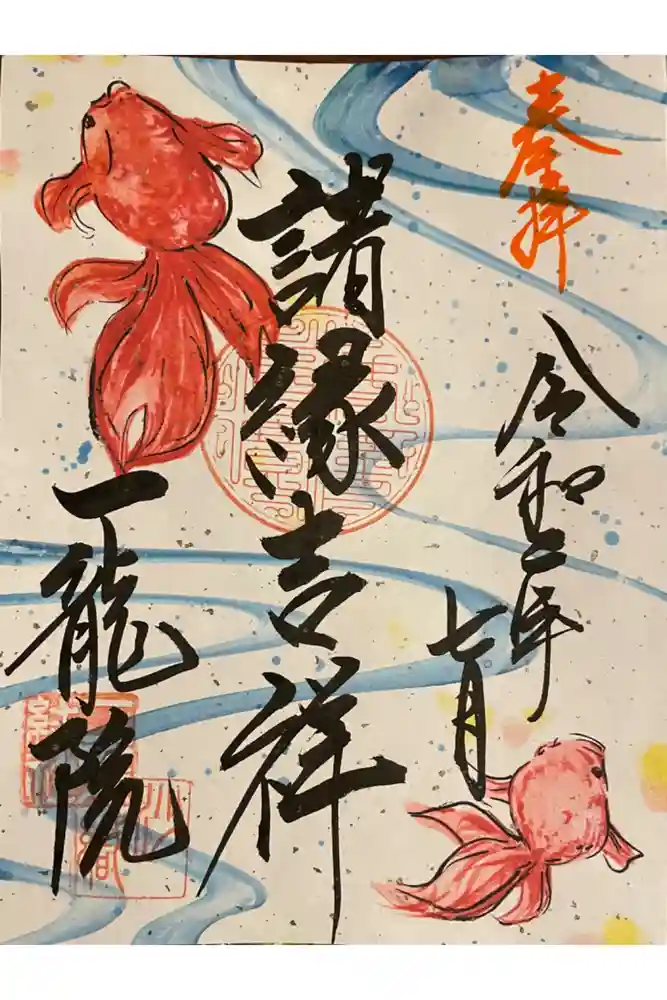 奉拝
令和二年
七月
諸縁吉祥
一龍院